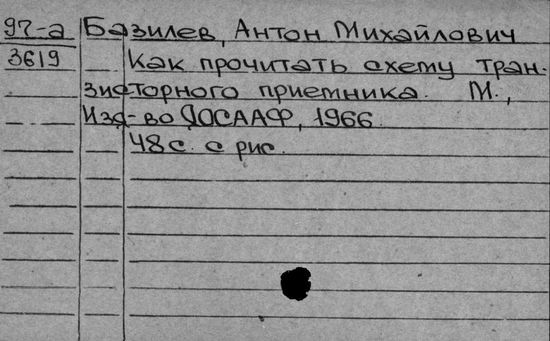 97-а Базилев, Антон Михайлович
3619 Как прочитать схему тран-
зисторного приемника. М.,
Изд-во ДОСААФ, 1966.
48 с. с рис.